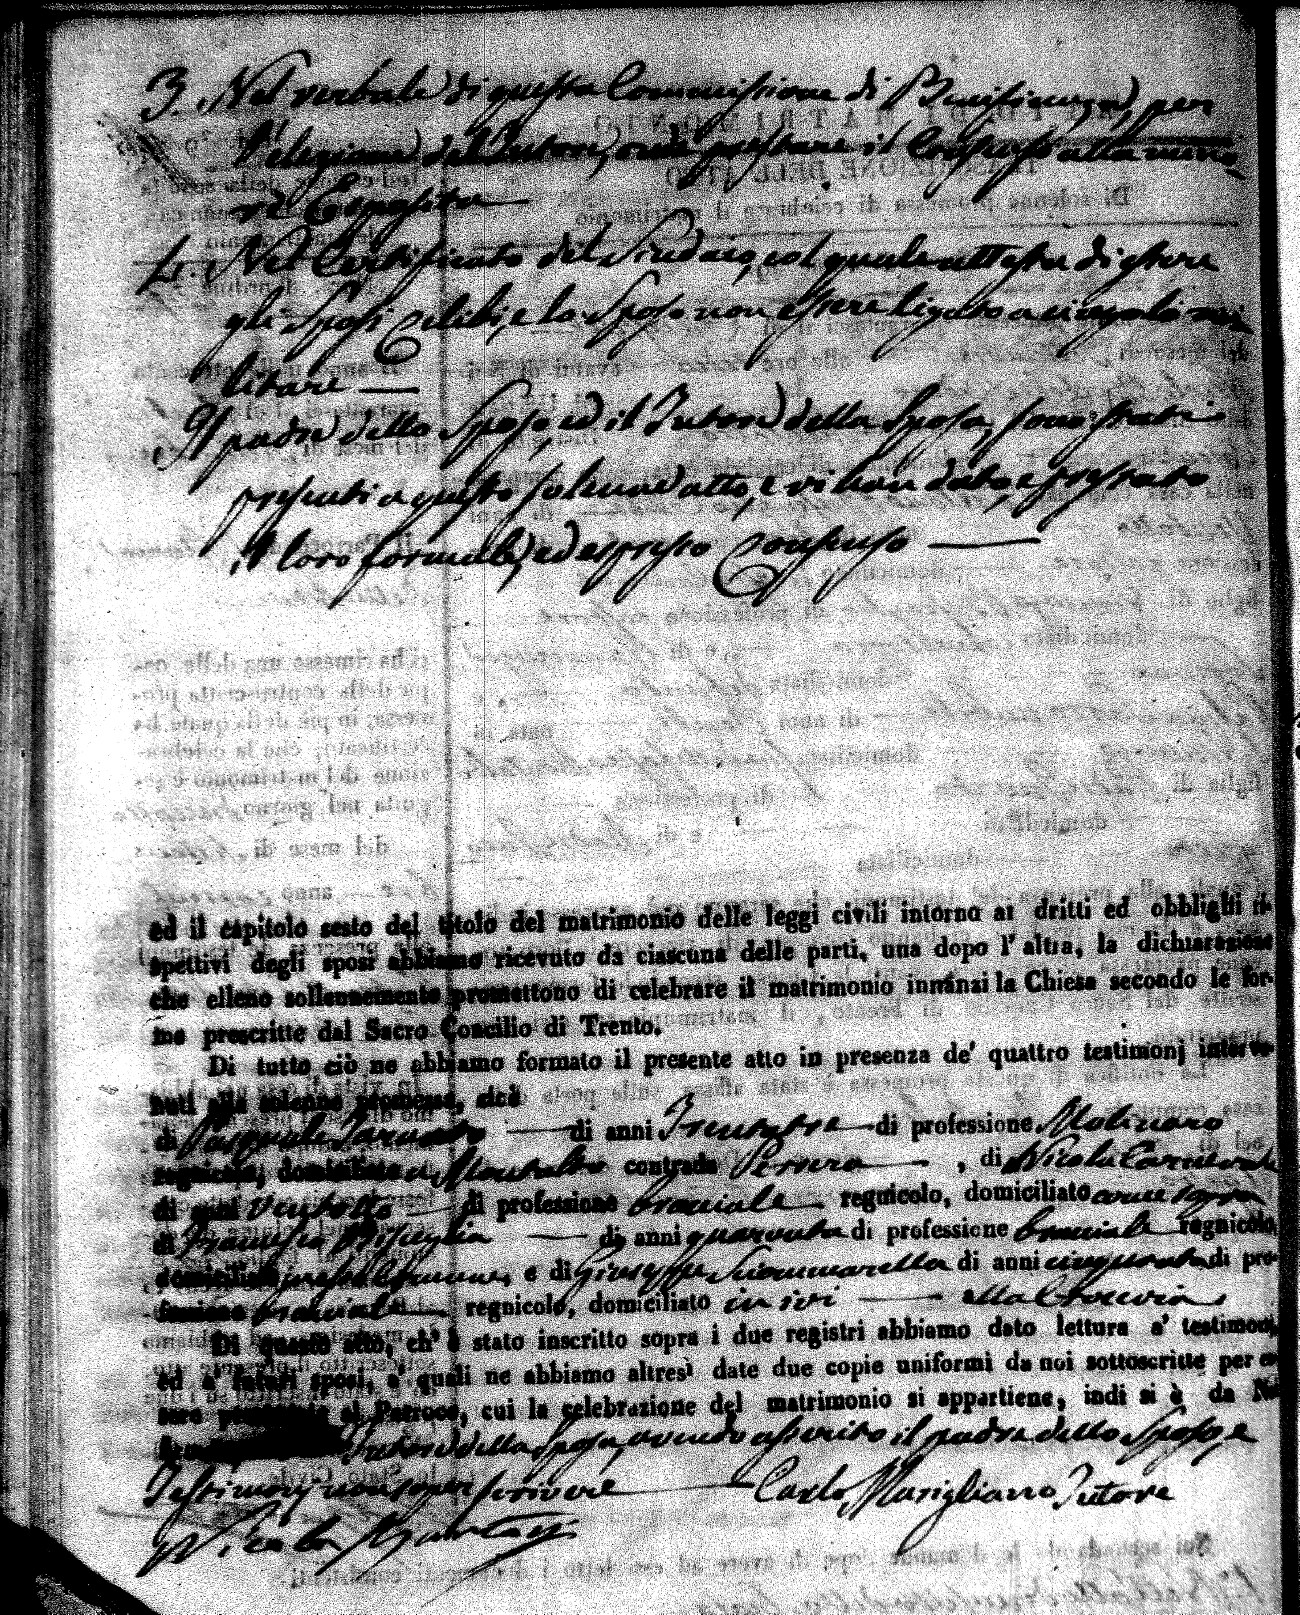 3. Nel verbale di questa Commissione di Beneficenza, per
l'elezione del Tutore, onde prestare il Consenso alla mino
re Esposita
4. Nel Certificato del Sindaco, col quale attesta di essere
gli Sposi Celibi, e lo Sposo non essere ligato a vincoli mi
litari
Il padre dello Sposo, ed il Tutore della Sposa, sono stati
presenti a questo solenne atto, e vi han dato, e prestato
il loro formale, ed espresso Consenso
ed il capitolo sesto del titolo del matrimonio delle leggi civili intorno ai dritti ed obblighi ri-
spettivi degli sposi abbiamo ricevuto da ciascuna delle parti, una dopo l'altra, la dichiarazione
che elleno sollennemente promettono di celebrare il matrimonio innanzi la Chiesa secondo le for-
me prescritte dal Sacro Concilio di Trento.
Di tutto ciò ne abbiamo formato il presente atto in presenza de' quattro testimonj interve-
nuti alla solenne promessa, cioè
di Pasquale di anni Trentatre di professione Molinaro
regnicolo, domiciliato a Montalto contrada , di Nicola Carnevale
di anni ventotto di professione bracciale regnicolo, domiciliato come sopra
di Francesco Bisceglia di anni quaranta di professione bracciale regnicolo,
domiciliato , e di Giuseppe Sciammarella di anni cinquanta di pro-
fessione bracciale regnicolo, domiciliato in ivi
Di questo atto, ch' è stato inscritto sopra i due registri abbiamo dato lettura a' testimonj,
ed a' futuri sposi, a' quali ne abbiamo altresì date due copie uniformi da noi sottoscritte per es-
sere presentate al Parroco, cui la celebrazione del matrimonio si appartiene, indi si è da Noi
Tutore della Sposa, avendo asserito il padre dello Sposo, e
Testimonj non saper scrivere Carlo Marigliano Tutore
Nicola